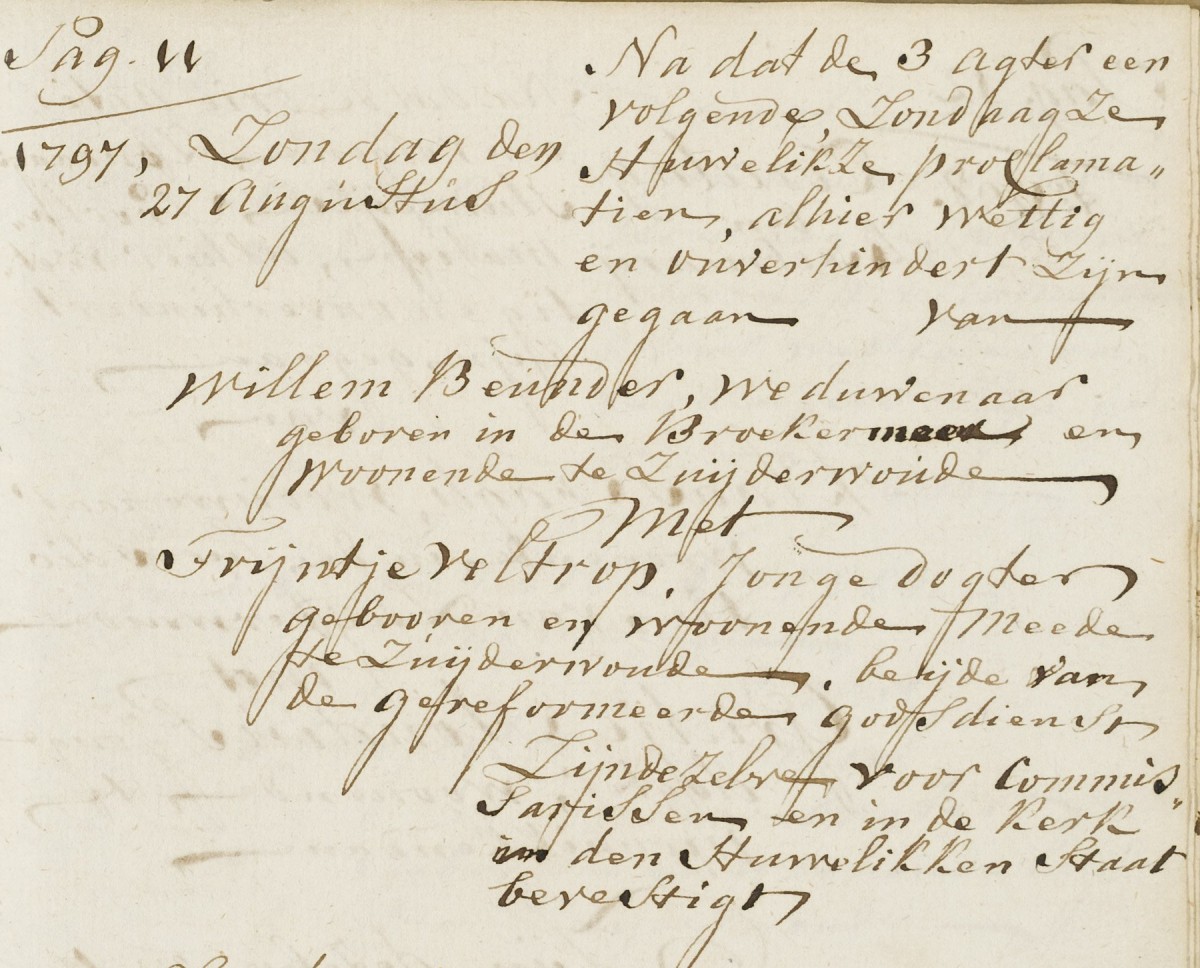 Pag. 11
1797, Zondag den
27 Augustus
Na dat de 3 agter een
volgende, Zondaagze
Huwelikze proclama„
tien, alhier wettig
en onverhindert zijn
gegaan van
Willem Beunder, weduwenaar
geboren in de Broekermeer, en
woonende te Zuijderwoude
Met
Trijntje Veltrop, Jonge dogter
gebooren en woonende Meede
te Zuijderwoude, beijde van
de gereformeerde godsdienst
Zijnde zelve voor Commis„
sarissen en in de kerk
in den Huwelikken Staat
bevestigt